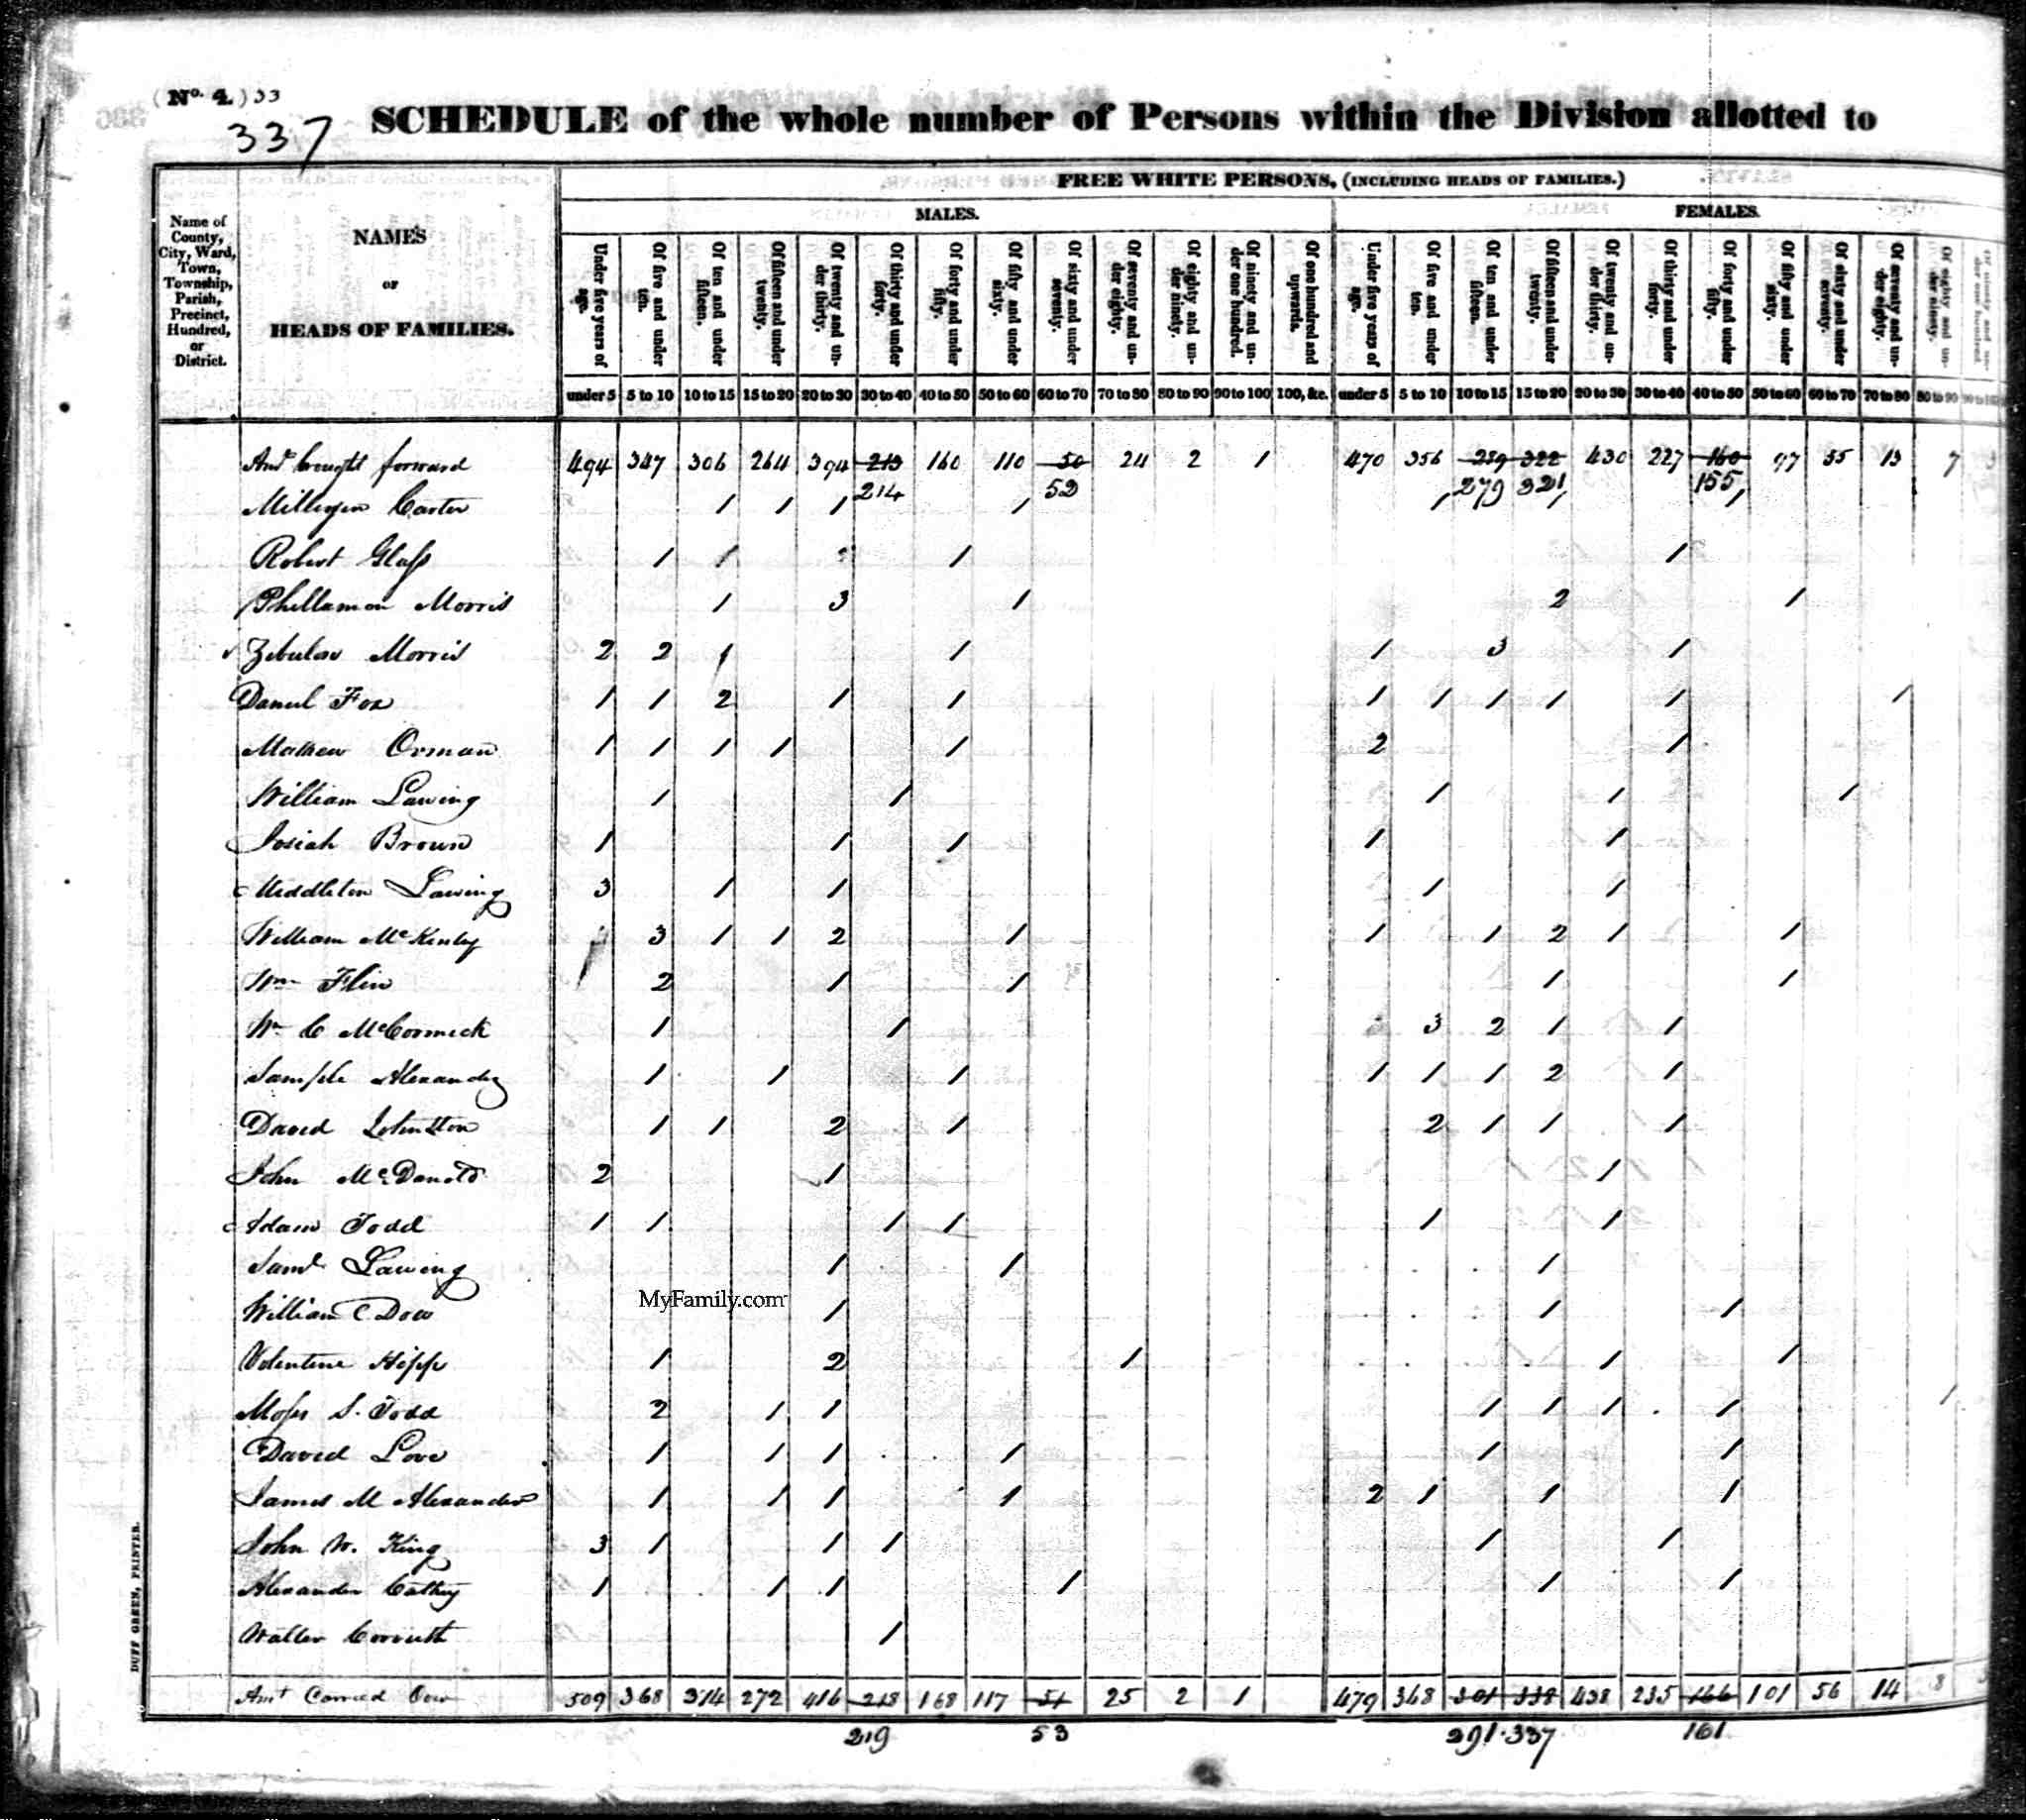 (No. 4.) 33
337 SCHEDULE of the whole number of Persons within the Division allotted to
Name of County, City, Ward, Town, Township, Parish, Precinct, Hundred, or District.
NAMES OR HEADS OF FAMILIES.
FREE WHITE PERSONS, (INCLUDING HEADS OF FAMILIES.)
MALES. FEMALES.
Under five years of age. Of five and under ten. Of ten and under fifteen. Of fifteen and under twenty. Of twenty and under thirty. Of thirty and under forty. Of forty and under fifty. Of fifty and under sixty. Of sixty and under seventy. Of seventy and under eighty. Of eighty and under ninety. Of ninety and under one hundred. Of one hundred and upwards. Under five years of age. Of five and under ten. Of ten and under fifteen. Of fifteen and under twenty. Of twenty and under thirty. Of thirty and under forty. Of forty and under fifty. Of fifty and under sixty. Of sixty and under seventy. Of seventy and under eighty. Of eighty and under ninety.
under 5 5 to 10 10 to 15 15 to 20 20 to 30 30 to 40 40 to 50 50 to 60 60 to 70 70 to 80 80 to 90 90 to 100 100, &c. under 5 5 to 10 10 to 15 15 to 20 20 to 30 30 to 40 40 to 50 50 to 60 60 to 70 70 to 80 80 to 90
Amt brought forward 494 347 306 264 394 213 160 110 50 24 2 1 470 356 289 322 430 227 160 97 55 13 7
214 52 279 321 155
Milligen Carter 1 1 1 1 1 1 1
Robert Glass 1 1 1 1
Phillamon Morris 1 3 1 2 1
Zebulon Morris 2 2 1 1 1 3 1
Daniel Fox 1 1 2 1 1 1 1 1 1 1 1
Mathew Orman 1 1 1 1 1 2 1
William Lawing 1 1 1 1 1
Josiah Brown 1 1 1 1 1
Middleton Lawing 3 1 1 1 1
William McKinley 3 1 1 2 1 1 1 2 1 1
Wm Flin 2 1 1 1 1
Wm C McCormick 1 1 3 2 1 1
Sample Alexander 1 1 1 1 1 1 2 1
David Johnston 1 1 2 1 2 1 1 1
John McDonald 2 1 1
Adam Todd 1 1 1 1 1 1
Saml Lawing 1 1 1
William C Dow 1 1 1
Valentine Hipp 1 2 1 1 1
Moses S. Todd 2 1 1 1 1 1 1 1
David Love 1 1 1 1 1 1
James M Alexander 1 1 1 1 2 1 1 1
John W. King 3 1 1 1 1 1
Alexander Cathey 1 1 1 1 1 1
Walter Corruth 1
MyFamily.com
Amt Carried Over 509 368 314 272 416 218 168 117 51 25 2 1 479 368 301 338 438 235 166 101 56 14 8
219 53 291 337 161
DUFF GREEN, PRINTER.